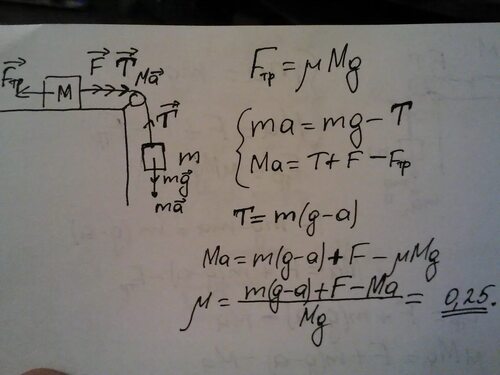 F⃗тр M F⃗ T⃗ Ma⃗
T⃗
m
mg⃗
ma⃗
Fтр = μMg
{ ma = mg - T
Ma = T + F - Fтр
T = m(g-a)
Ma = m(g-a) + F - μMg
μ = m(g-a) + F - Ma / Mg = 0,25.